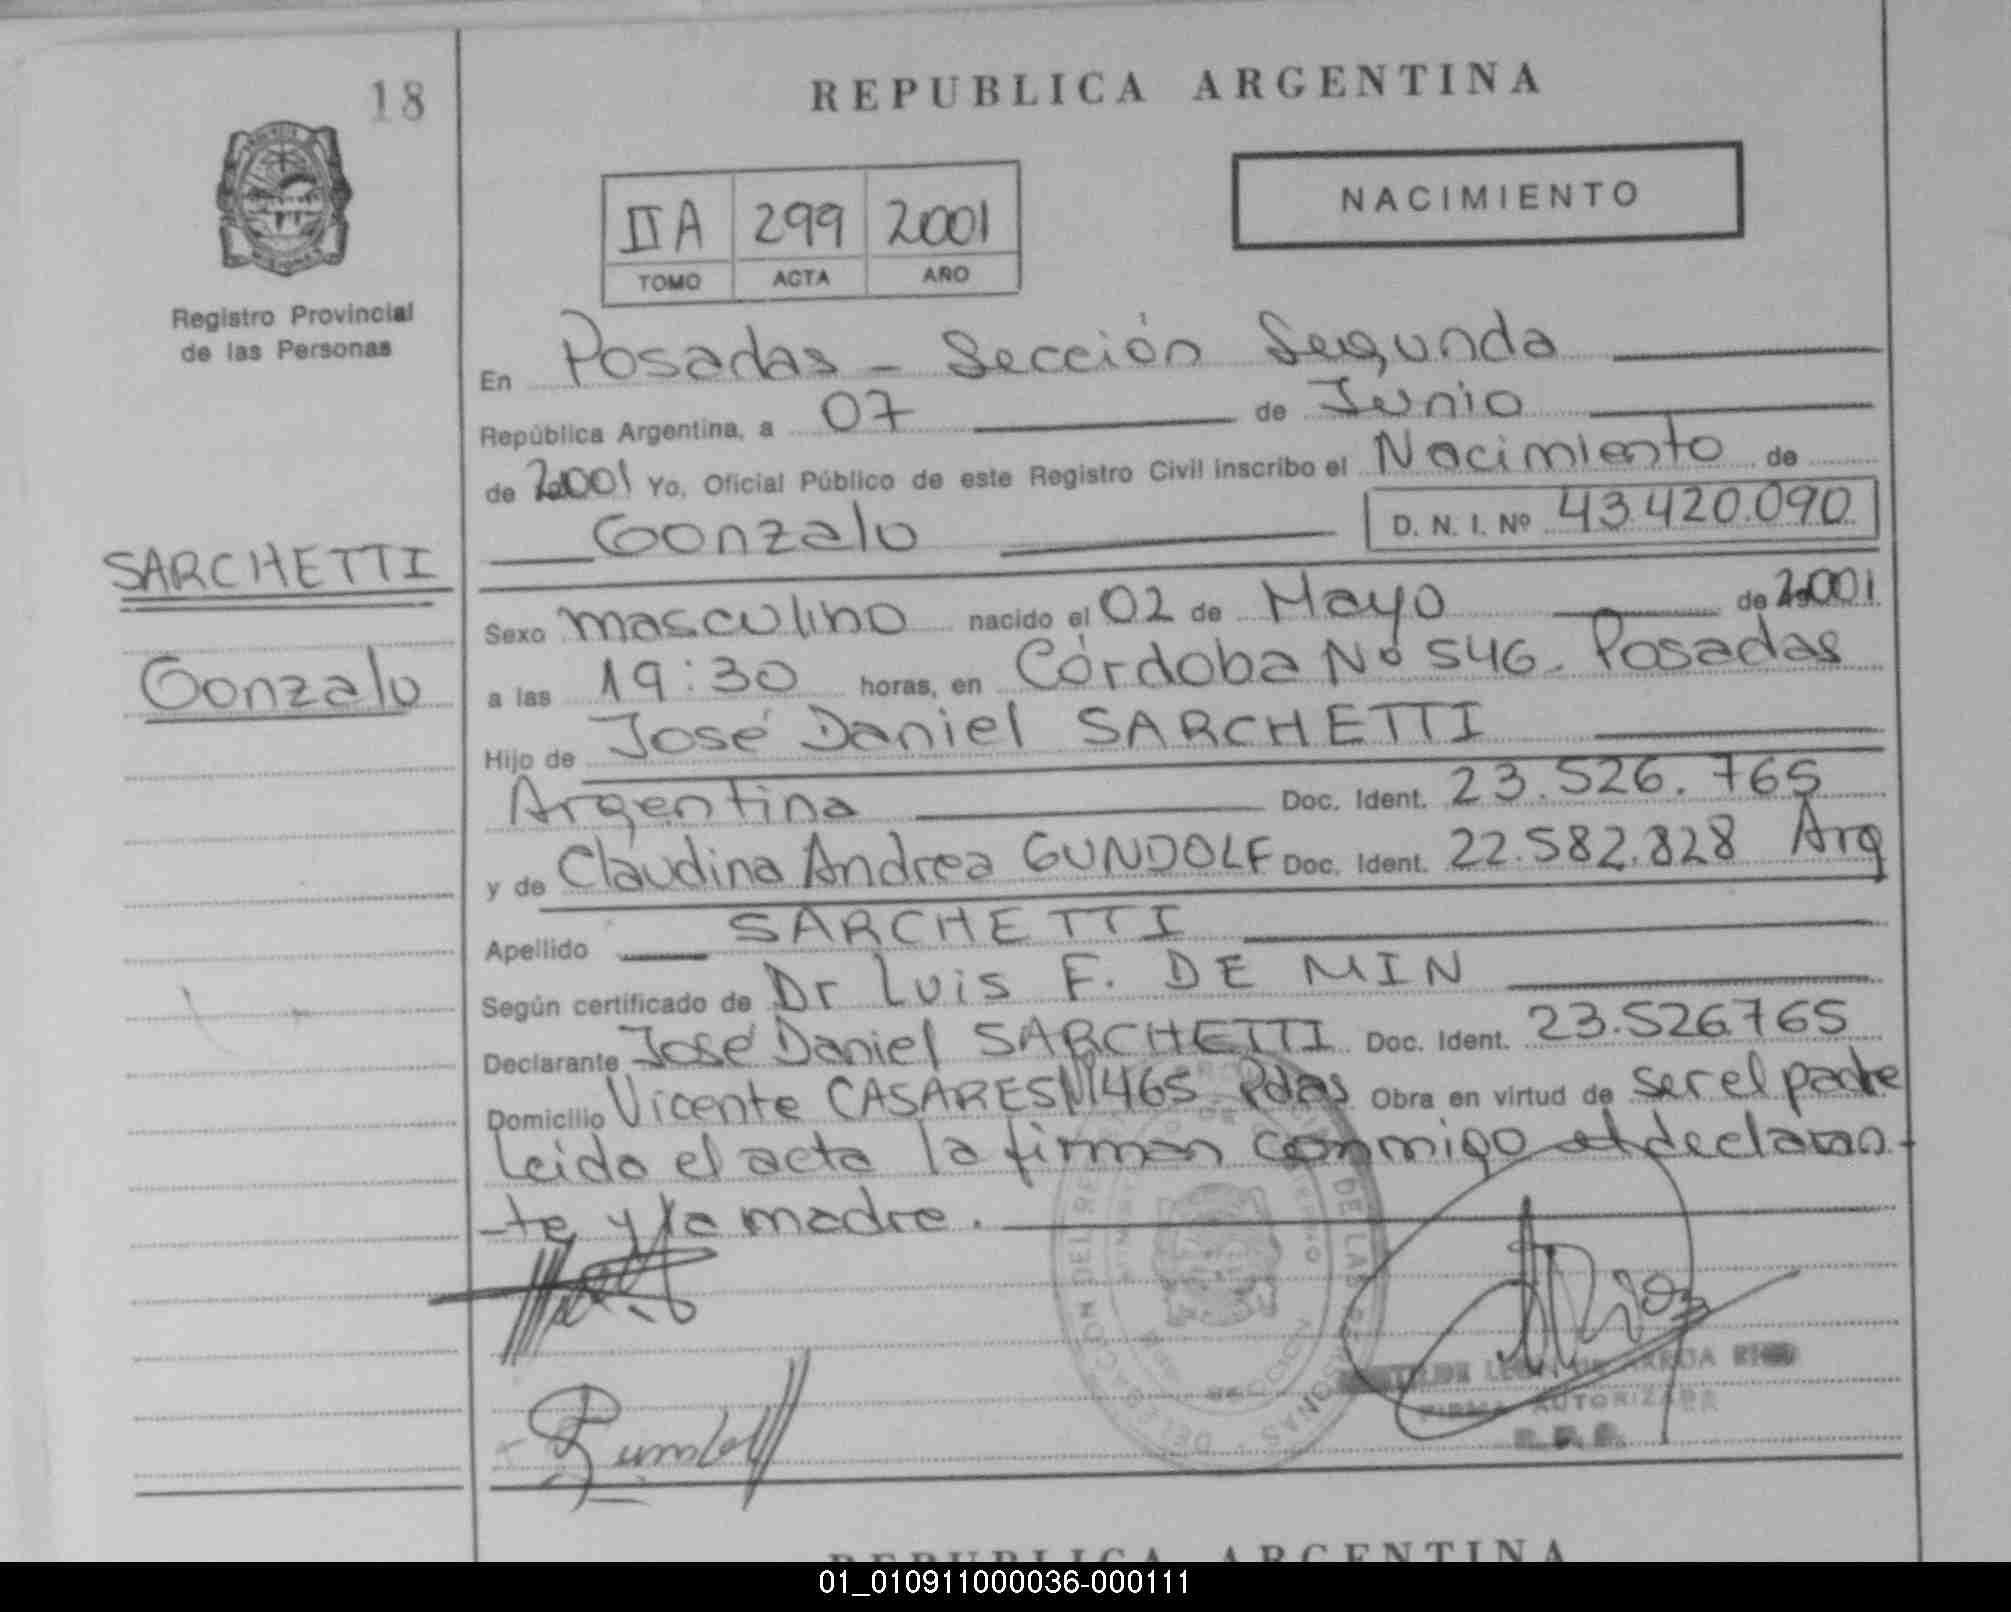 18
REPUBLICA ARGENTINA
NACIMIENTO
IIA 299 2001
TOMO ACTA AÑO
Registro Provincial
de las Personas
En Posadas - Sección Segunda
República Argentina, a 07 de Junio
de 2001 Yo, Oficial Público de este Registro Civil inscribo el Nacimiento de
Gonzalo D. N. I. Nº 43.420.090
SARCHETTI
Gonzalo
Sexo masculino nacido el 02 de Mayo de 2001
a las 19:30 horas, en Córdoba Nº 546 - Posadas
Hijo de José Daniel SARCHETTI
Argentina Doc. Ident. 23.526.765
y de Claudina Andrea GUNDOLF Doc. Ident. 22.582.828 Arg
Apellido SARCHETTI
Según certificado de Dr Luis F. DE MIN
Declarante José Daniel SARCHETTI Doc. Ident. 23.526765
Domicilio Vicente CASARES Nº1465 Pdas Obra en virtud de ser el padre
Leida el acta la firman conmigo el declaran-
-te y la madre.
FIRMA AUTORIZADA
REPUBLICA ARGENTINA
01_010911000036-000111